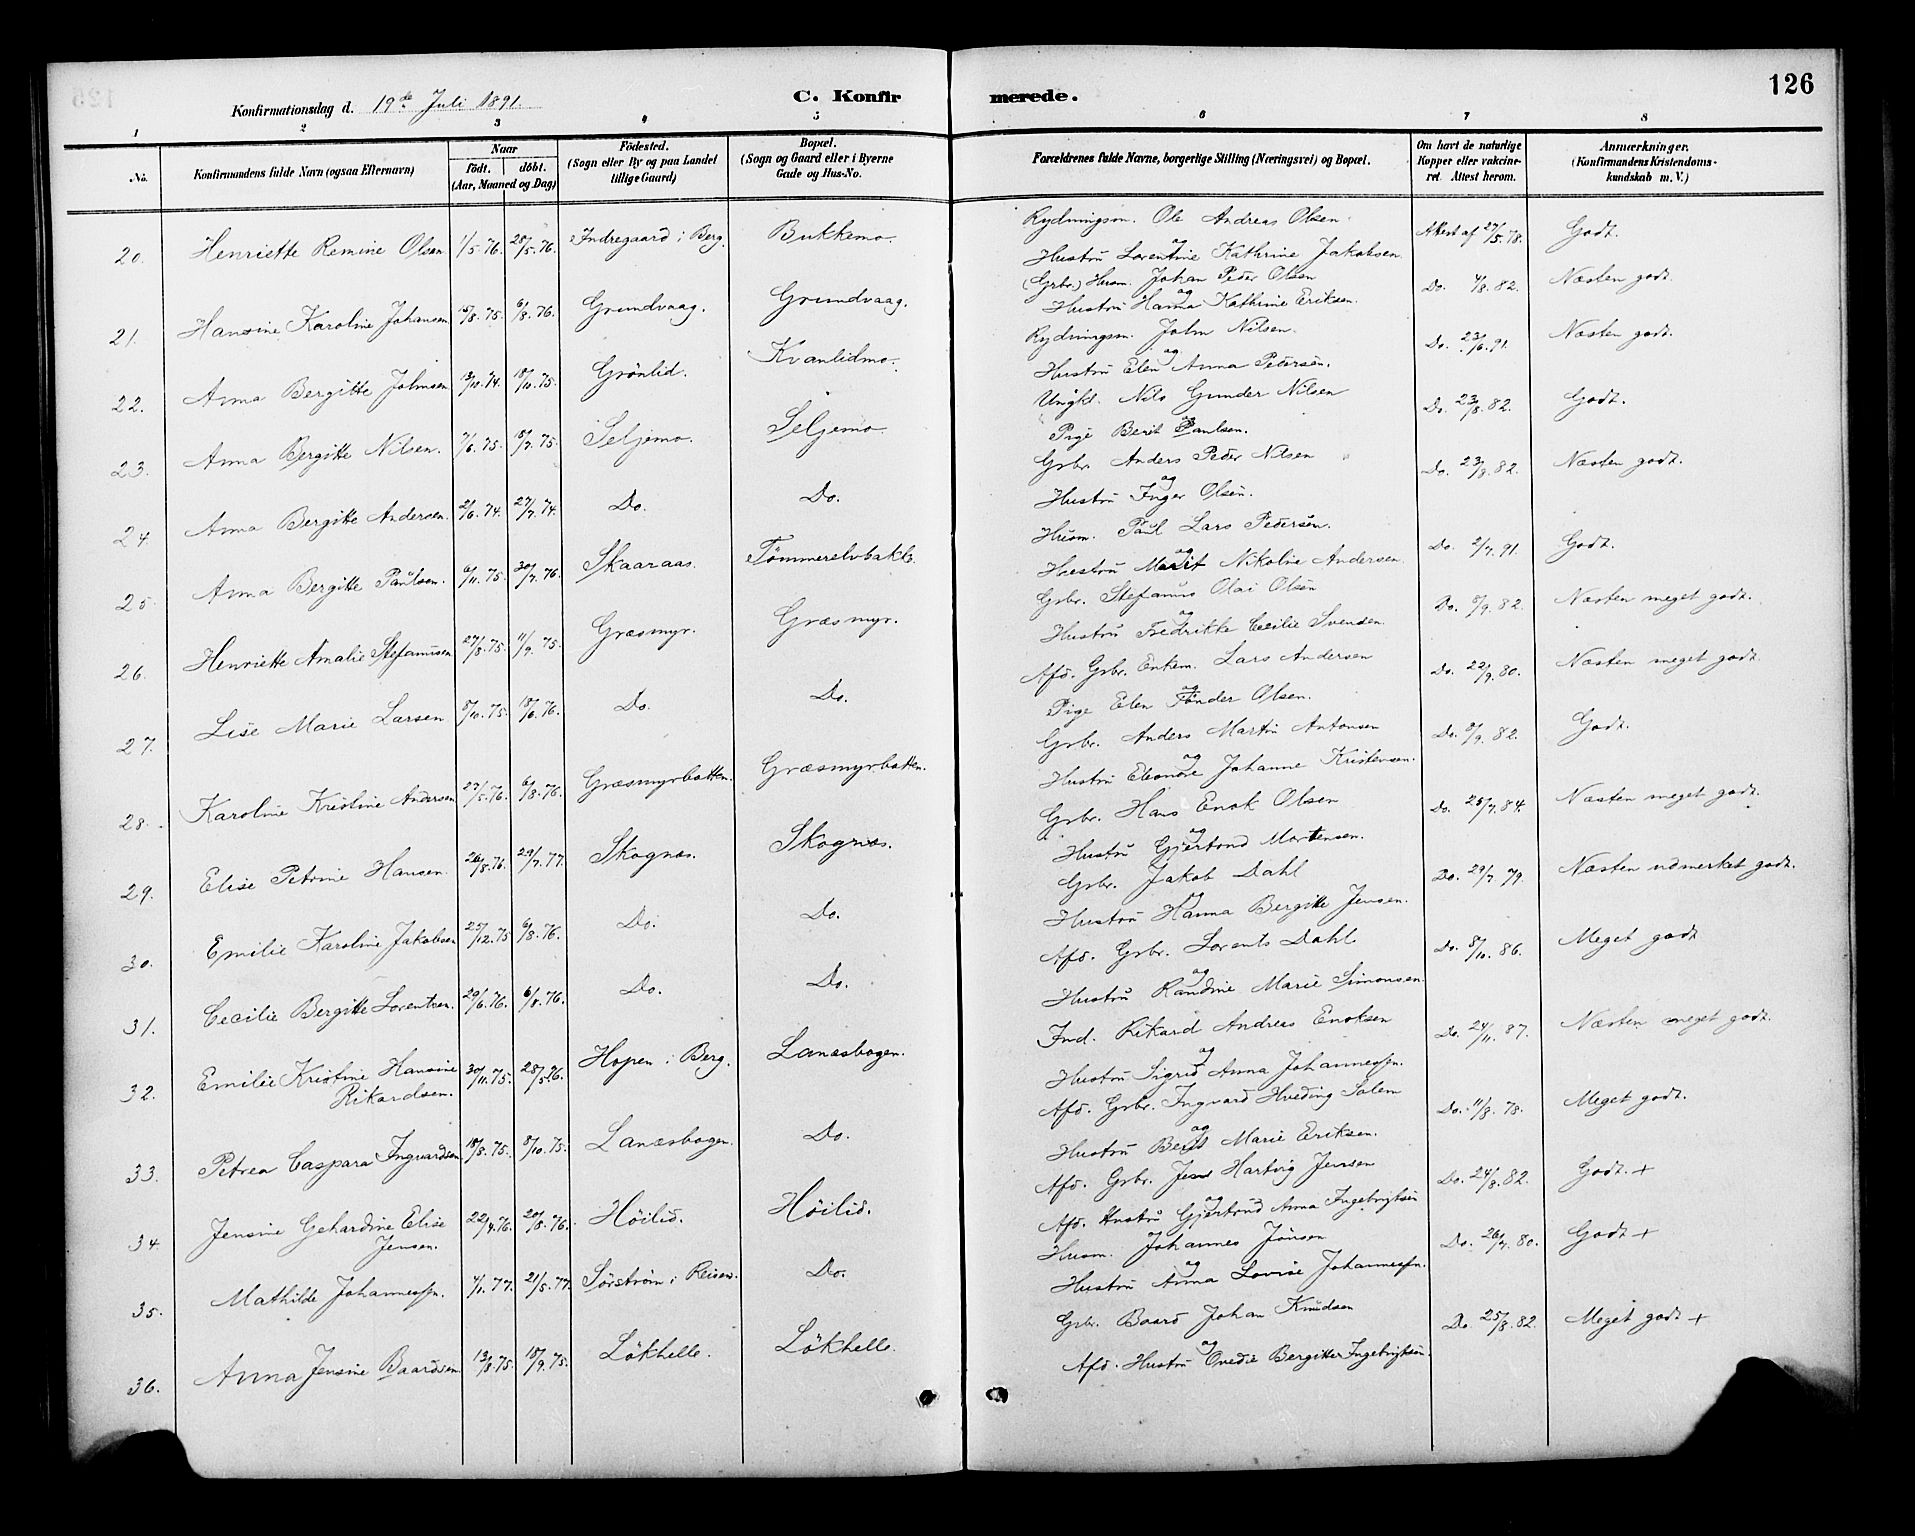 126
Konfirmationsdag d. 19de Juli 1891.
C. Konfirmerede.
1 2 3 4 5 6 7 8
No. Konfirmandens fulde Navn (ogsaa Efternavn) Naar født. døbt. (Aar, Maaned og Dag) Fødested. (Sogn eller By og paa Landet tillige Gaard) Bopæl. (Sogn og Gaard eller i Byerne Gade og Hus-No. Forældrenes fulde Navne, borgerlige Stilling (Næringsvei) og Bopæl. Om havt de naturlige Kopper eller vakcineret Attest herom. Anmærkninger. (Konfirmandens Kristendomskundskab m. V.)
20. Henriette Remine Olsen 1/5.76. 28/5.76. Indregaard i Berg. Bukkemo. Rydningsm. Ole Andreas Olsen og Hustru Lorentine Kathrine Jakobsen. Attest af 27/5.78. Godt.
21. Hansine Karoline Johansen 15/8.75. 6/8.76. Grundvaag. Grundvaag. (Grbr.) Husm. Johan Peder Olsen og Hustru Hanna Kathrine Eriksen. Do. 4/8.82. Næsten godt.
22. Anna Bergitte Johnsen 13/10.74. 18/10.75. Grönlid. Kvanlidmo. Rydningsm. John Nilsen og Hustru Elen Anna Pedersen. Do. 23/6.91. Næsten godt.
23. Anna Bergitte Nilsen. 7/6.75. 18/7.75. Seljemo. Seljemo. Ungkl. Nils Gunder Nilsen og Pige Berit Paulsen. Do. 23/8.82. Godt.
24. Anna Bergitte Andersen. 2/6.74. 27/7.74. Do. Do. Grbr. Anders Peder Nilsen og Hustru Inger Olsen. Do. 23/8.82. Næsten godt.
25. Anna Bergitte Paulsen. 6/11.75. 30/7.76. Skaaraas. Tömmerelvbakk. Husm. Paul Lars Pedersen. og Hustru Marit Nikoline Andersen. Do. 2/7.91. Godt.
26. Henriette Amalie Stefanusen 27/8.75. 11/9.75. Græsmyr. Græsmyr. Grbr. Stefanus Olai Olsen og Hustru Fredrikke Cecilie Svensen. Do. 8/9.82. Næsten meget godt.
27. Lise Marie Larsen 8/10.75. 18/6.76. Do. Do. Afd. Grbr. Enkem. Lars Andersen og Pige Elen Olsen. Do. 22/9.80. Næsten meget godt.
28. Karoline Kristine Andersen 27/5.76. 6/8.76. Græsmyrbotten. Græsmyrbotten. Grbr. Anders Martin Antonsen og Hustru Eleonore Johanne Kristensen. Do. 8/9.82. Godt.
29. Elise Petrine Hansen. 26/8.76. 29/7.77. Skognæs. Skognæs. Grbr. Hans Enok Olsen og Hustru Gjertrud Mortensen. Do. 25/7.84. Næsten meget godt.
30. Emilie Karoline Jakobsen 25/12.75 6/8.76. Do. Do. Grbr. Jakob Dahl og Hustru Hanna Bergitte Jensen. Do. 29/7.79. Næsten udmerket godt.
31. Cecilie Bergitte Lorentsen. 29/6.76. 6/8.76. Do. Do. Afd. Grbr. Lorents Dahl og Hustru Randine Marie Simonsen. Do. 8/10.86. Meget godt
32. Emilie Kristine Hansine Rikardsen. 30/11.75. 28/5.76. Hopen i Berg. Lanæsbogen. Ind. Rikard Andreas Enoksen og Hustru Sigrid Anna Johannessn. Do. 24/11.87. Næsten meget godt.
33. Petrea Caspara Ingvardsen 18/8.75. 8/10.75. Lanæsbogen. Do. Afd. Grbr. Ingvard Hveding Salem og Hustru Berit Marie Eriksen. Do. 11/8.78. Meget godt.
34. Jensine Gehardine Elise Jensen. 22/4.76. 20/8.76. Höilid. Höilid. Afd. Grbr. Jens Hartvig Jensen og Afd. Hustru Gjertrud Anna Ingebrigtsen Do. 24/8.82. Godt. +
35. Mathilde Johannessn. 4/1.77. 21/5.77. Sörström i Reisen. Do. Husm. Johannes Jönsen og Hustru Anna Lovise Johannessn. Do. 26/7.80. Godt +
36. Anna Jensine Baardsen 13/8.75. 18/9.75. Lökhelle. Lökhelle. Grbr. Baard Johan Knudsen og Afd. Hustru Ovedie Bergitte Ingebrigtsen. Do. 25/8.82. Meget godt +